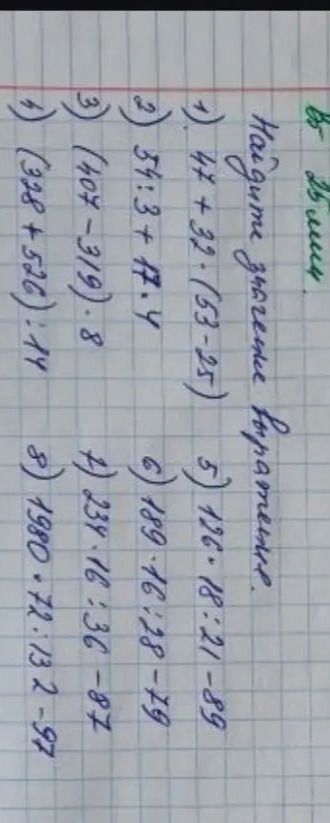 25 мин.
Найдите значение выражение.
1) 47 + 32 · (53 - 25)
2) 54 : 3 + 17 · 4
3) (407 - 319) · 8
4) (328 + 526) : 14
5) 126 · 18 : 21 - 89
6) 189 · 16 : 28 - 79
7) 234 · 16 : 36 - 87
8) 1980 · 72 : 132 - 97